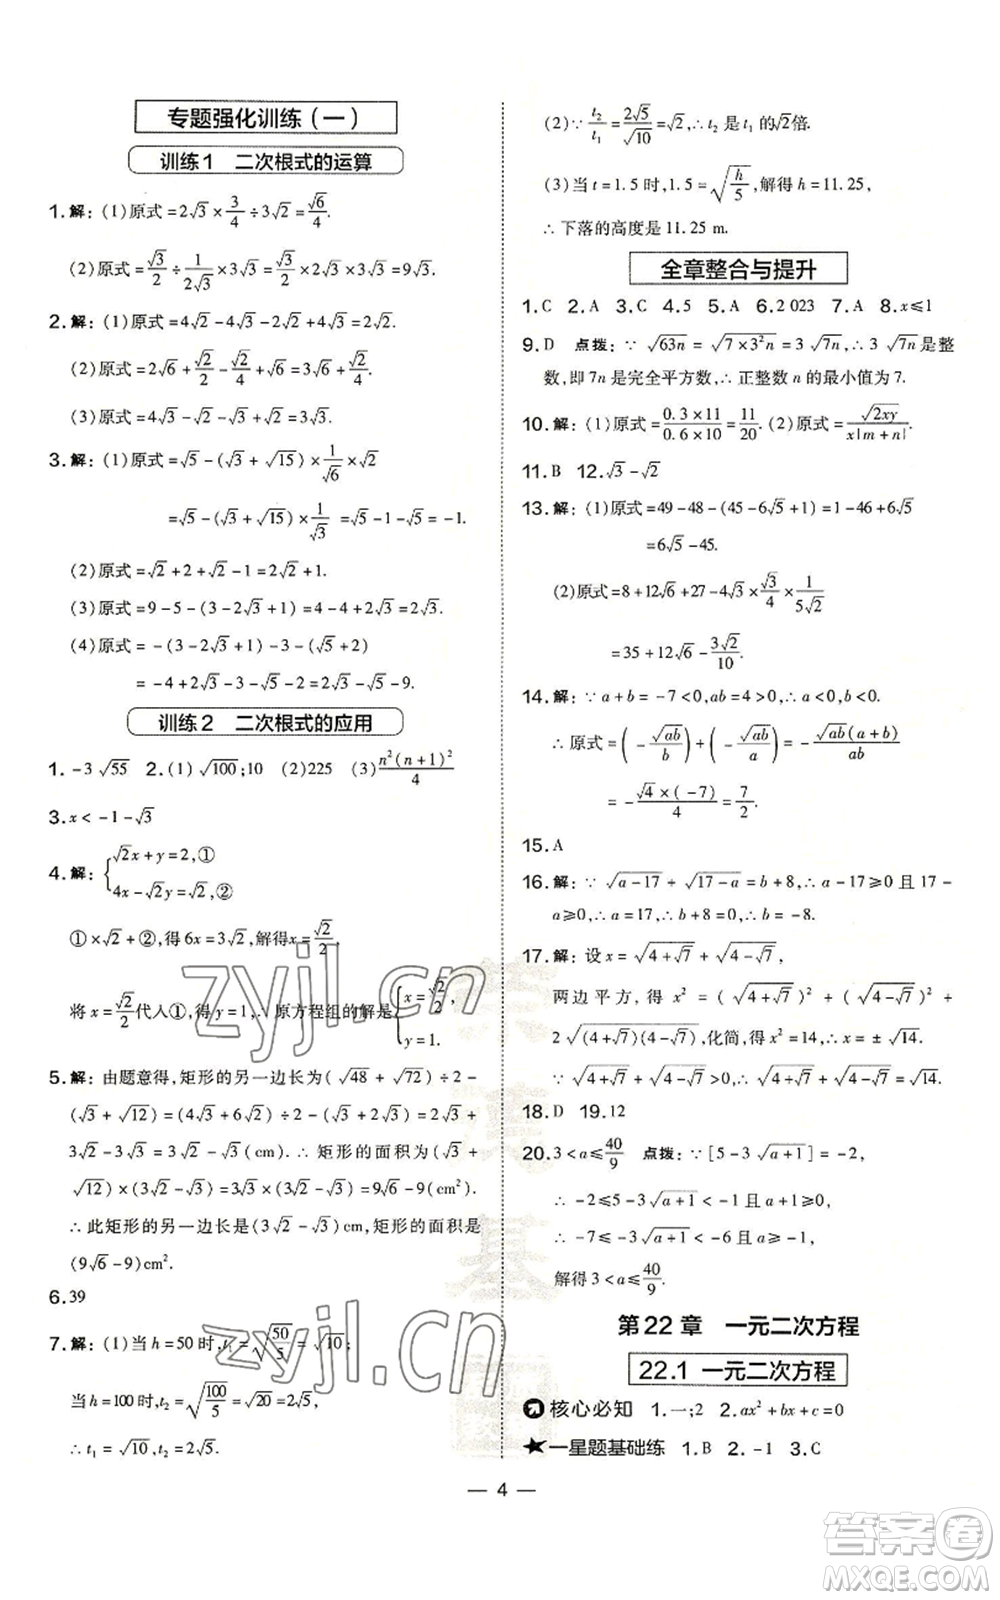 专题强化训练(一)
训练1 二次根式的运算
1.解:(1)原式=2√3×3/4÷3√2=√6/4.
(2)原式=√3/2÷1/(2√3)×3√3=√3/2×2√3×3√3=9√3.
2.解:(1)原式=4√2-4√3-2√2+4√3=2√2.
(2)原式=2√6+√2/2-√2/4+√6=3√6+√2/4.
(3)原式=4√3-√3+2√3=5√3.
3.解:(1)原式=√5-(√3+√15)×1/√6×√2
=√5-(√3+√15)×1/√3=√5-1-√5=-1.
(2)原式=√2+2+√2-1=2√2+1.
(3)原式=9-5-(3-2√3+1)=4-4+2√3=2√3.
(4)原式=-(3-2√3+1)-3-(√5+2)
=-4+2√3-3-√5-2=2√3-√5-9.
训练2 二次根式的应用
1.-3√55 2.(1)√100;10 (2)225 (3)n²(n+1)²/4
3.x<-1-√3
4.解:{√2x+y=2,①
4x-√2y=√2,②
①×√2+②,得6x=3√2,解得x=√2/2.
将x=√2/2代入①,得y=1,∴原方程组的解是{x=√2/2,
y=1.
5.解:由题意得,矩形的另一边长为(√48+√72)÷2-
(√3+√12)=(4√3+6√2)÷2-(√3+2√3)=2√3+
3√2-3√3=3√2-√3(cm).∴矩形的面积为(√3+
√12)×(3√2-√3)=3√3×(3√2-√3)=9√6-9(cm²).
∴此矩形的另一边长是(3√2-√3)cm,矩形的面积是
(9√6-9)cm².
6.39
7.解:(1)当h=50时,t₁=√(50/5)=√10;
当h=100时,t₂=√(100/5)=√20=2√5,
∴t₁=√10,t₂=2√5.
(2)∵t₂/t₁=2√5/√10=√2,∴t₂是t₁的√2倍.
(3)当t=1.5时,1.5=√(h/5),解得h=11.25,
∴下落的高度是11.25 m.
全章整合与提升
1.C 2.A 3.C 4.5 5.A 6.2 023 7.A 8.x≤1
9.D 点拨:∵√63n=√(7×3²n)=3√7n,∴3√7n是整
数,即7n是完全平方数,∴正整数n的最小值为7.
10.解:(1)原式=(0.3×11)/(0.6×10)=11/20.(2)原式=√2xy/(x|m+n|).
11.B 12.√3-√2
13.解:(1)原式=49-48-(45-6√5+1)=1-46+6√5
=6√5-45.
(2)原式=8+12√6+27-4√3×√3/4×1/(5√2)
=35+12√6-3√2/10.
14.解:∵a+b=-7<0,ab=4>0,∴a<0,b<0.
∴原式=(-√ab/b)+(-√ab/a)=-√ab(a+b)/ab
=-√4×(-7)/4=7/2.
15.A
16.解:∵√(a-17)+√(17-a)=b+8,∴a-17≥0且17-
a≥0,∴a=17,∴b+8=0,∴b=-8.
17.解:设x=√(4+√7)+√(4-√7),
两边平方,得x²=(√(4+√7))²+(√(4-√7))²+
2√((4+√7)(4-√7)),化简,得x²=14,∴x=±√14.
∵√(4+√7)+√(4-√7)>0,∴√(4+√7)+√(4-√7)=√14.
18.D 19.12
20.3<a≤40/9 点拨:∵[5-3√(a+1)]=-2,
∴-2≤5-3√(a+1)<-1,
∴-7≤-3√(a+1)<-6且a+1≥0,
解得3<a≤40/9.
第22章 一元二次方程
22.1 一元二次方程
核心必知 1.一;2 2.ax²+bx+c=0
一星题基础练 1.B 2.-1 3.C
— 4 —
zyjl.cn
zyjl.cn
答案圈
MXQE.COM